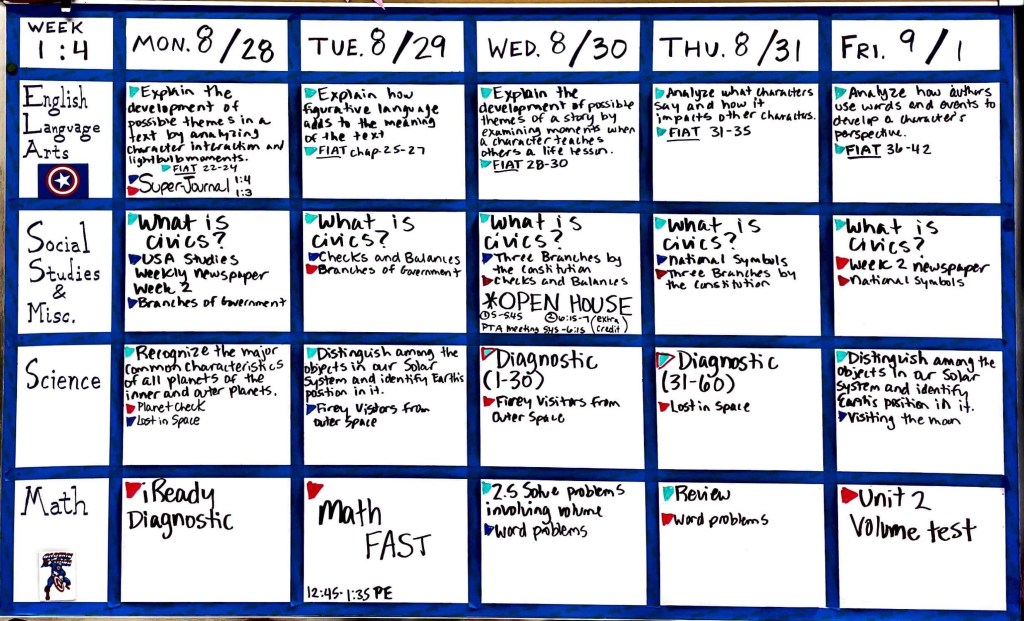 WEEK
1:4
MON. 8/28
TUE. 8/29
WED. 8/30
THU. 8/31
FRI. 9/1
English
Language
Arts
Explain the
development of
possible themes in a
text by analyzing
character interaction and
lightbulb moments.
FIAT 22-24
Super Journal 1:4
1:3
Explain how
figurative language
adds to the meaning
of the text
FIAT chap. 25-27
Explain the
development of possible
themes of a story by
examining moments when
a character teaches
others a life lesson.
FIAT 28-30
Analyze what characters
say and how it
impacts other characters.
FIAT 31-35
Analyze how authors
use words and events to
develop a character's
perspective.
FIAT 36-42
Social
Studies
&
Misc.
What is
civics?
USA Studies
Weekly newspaper
Week 2
Branches of Government
What is
civics?
Checks and Balances
Branches of Government
What is
civics?
Three Branches by
the Constitution
Checks and Balances
*OPEN HOUSE
① 5-5:45 ② 6:15-7 (extra
PTA meeting 5:45-6:15 credit)
What is
civics?
National Symbols
Three Branches by
the Constitution
What is
civics?
Week 2 newspaper
National Symbols
Science
Recognize the major
common characteristics
of all planets of the
inner and outer planets.
Planet Check
Lost in Space
Distinguish among the
objects in our Solar
System and identify Earth's
position in it.
Firey Visitors from
outer space
Diagnostic
(1-30)
Firey Visitors from
Outer Space
Diagnostic
(31-60)
Lost in Space
Distinguish among the
Objects in our Solar
System and identify
Earth's position in it.
Visiting the moon
Math
iReady
Diagnostic
Math
FAST
12:45-1:35 PE
2.5 Solve problems
involving volume
Word problems
Review
Word problems
Unit 2
Volume test